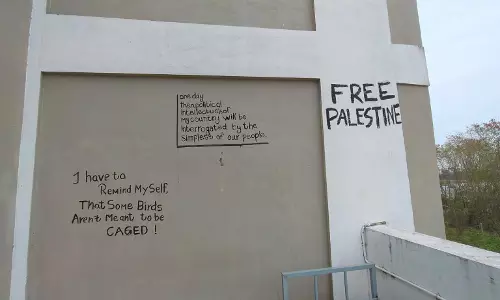 one day
the apolitical
intellectuals of
my country will be
interrogated by the
simplest of our people.
FREE
PALESTINE
I have to
Remind MySelf,
That Some Birds
Aren't Meant to be
CAGED !